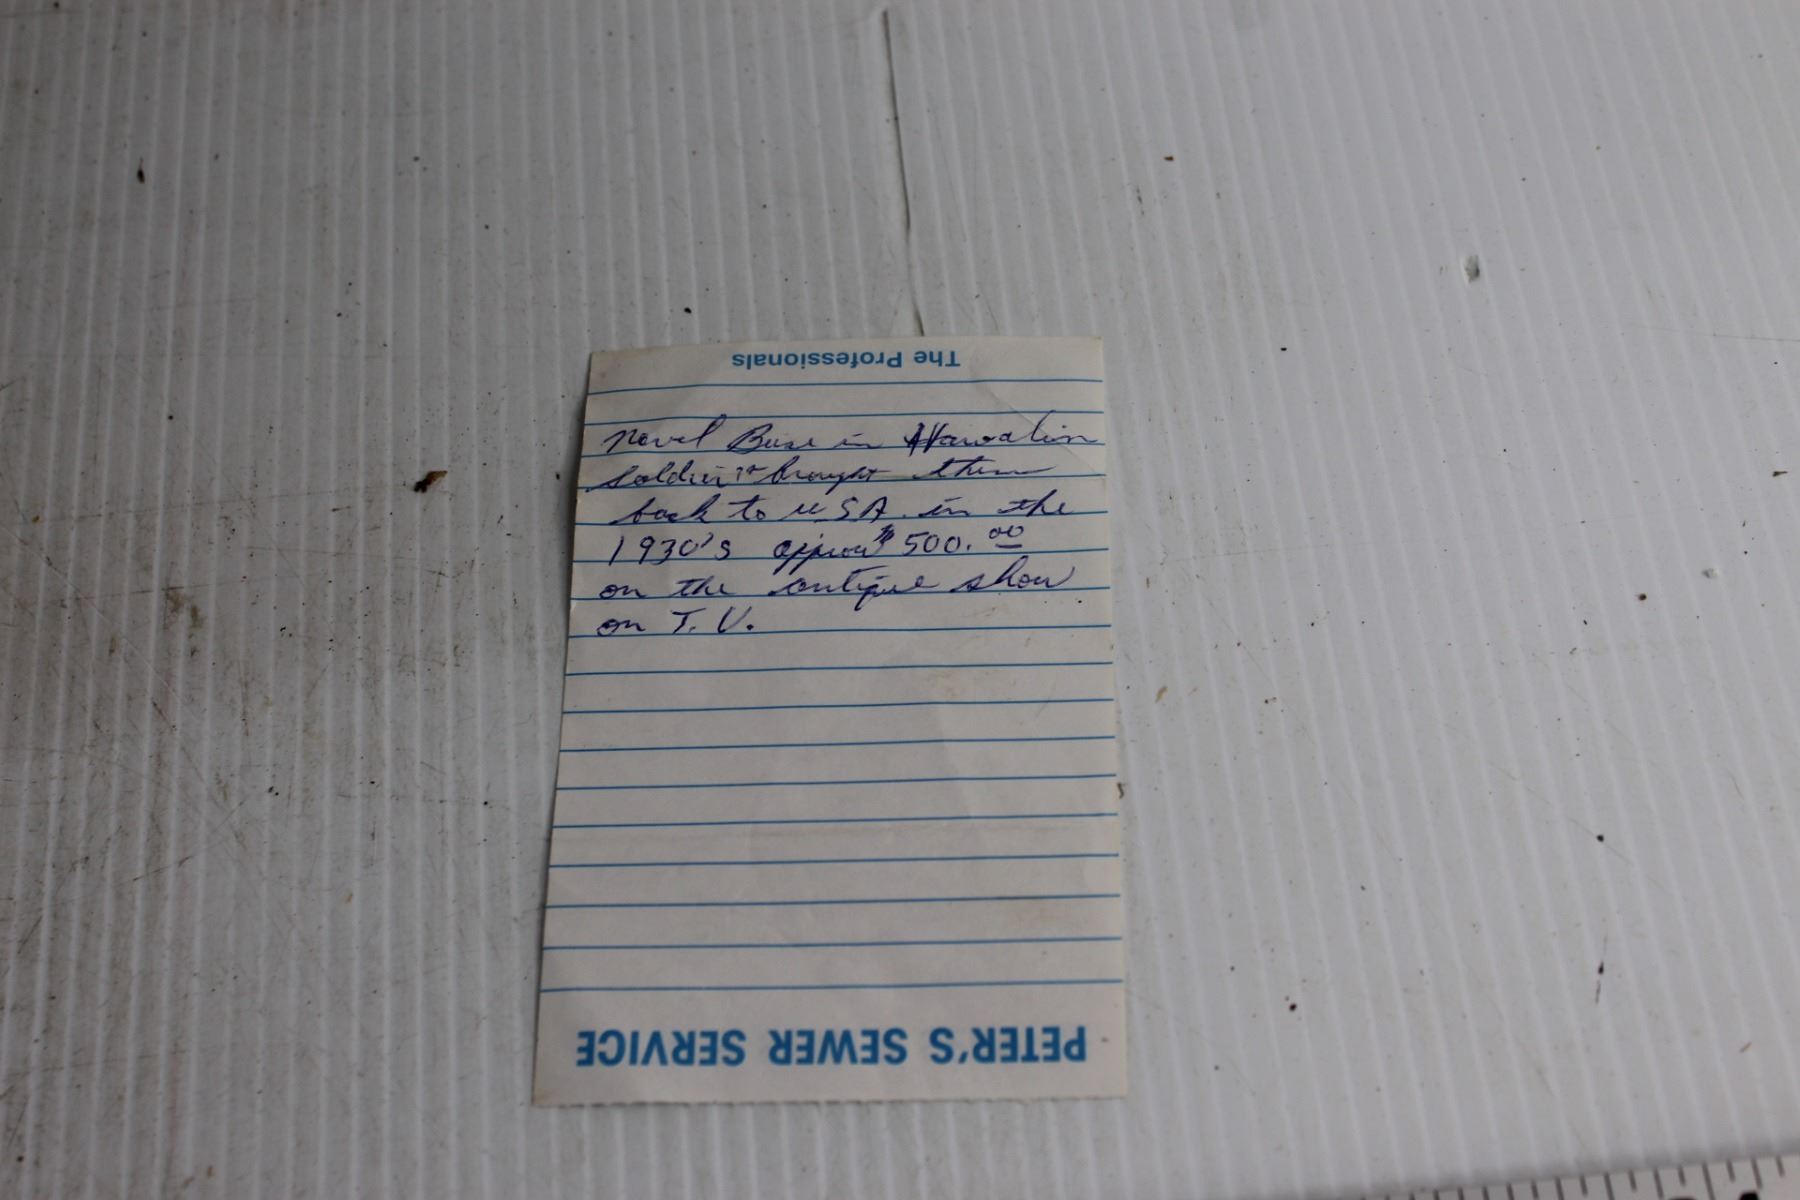 The Professionals
Navel Base in Hawaiin
Soldiers brought them
back to USA. in the
1930's approx $500.00
on the antique show
on T.V.
PETER'S SEWER SERVICE